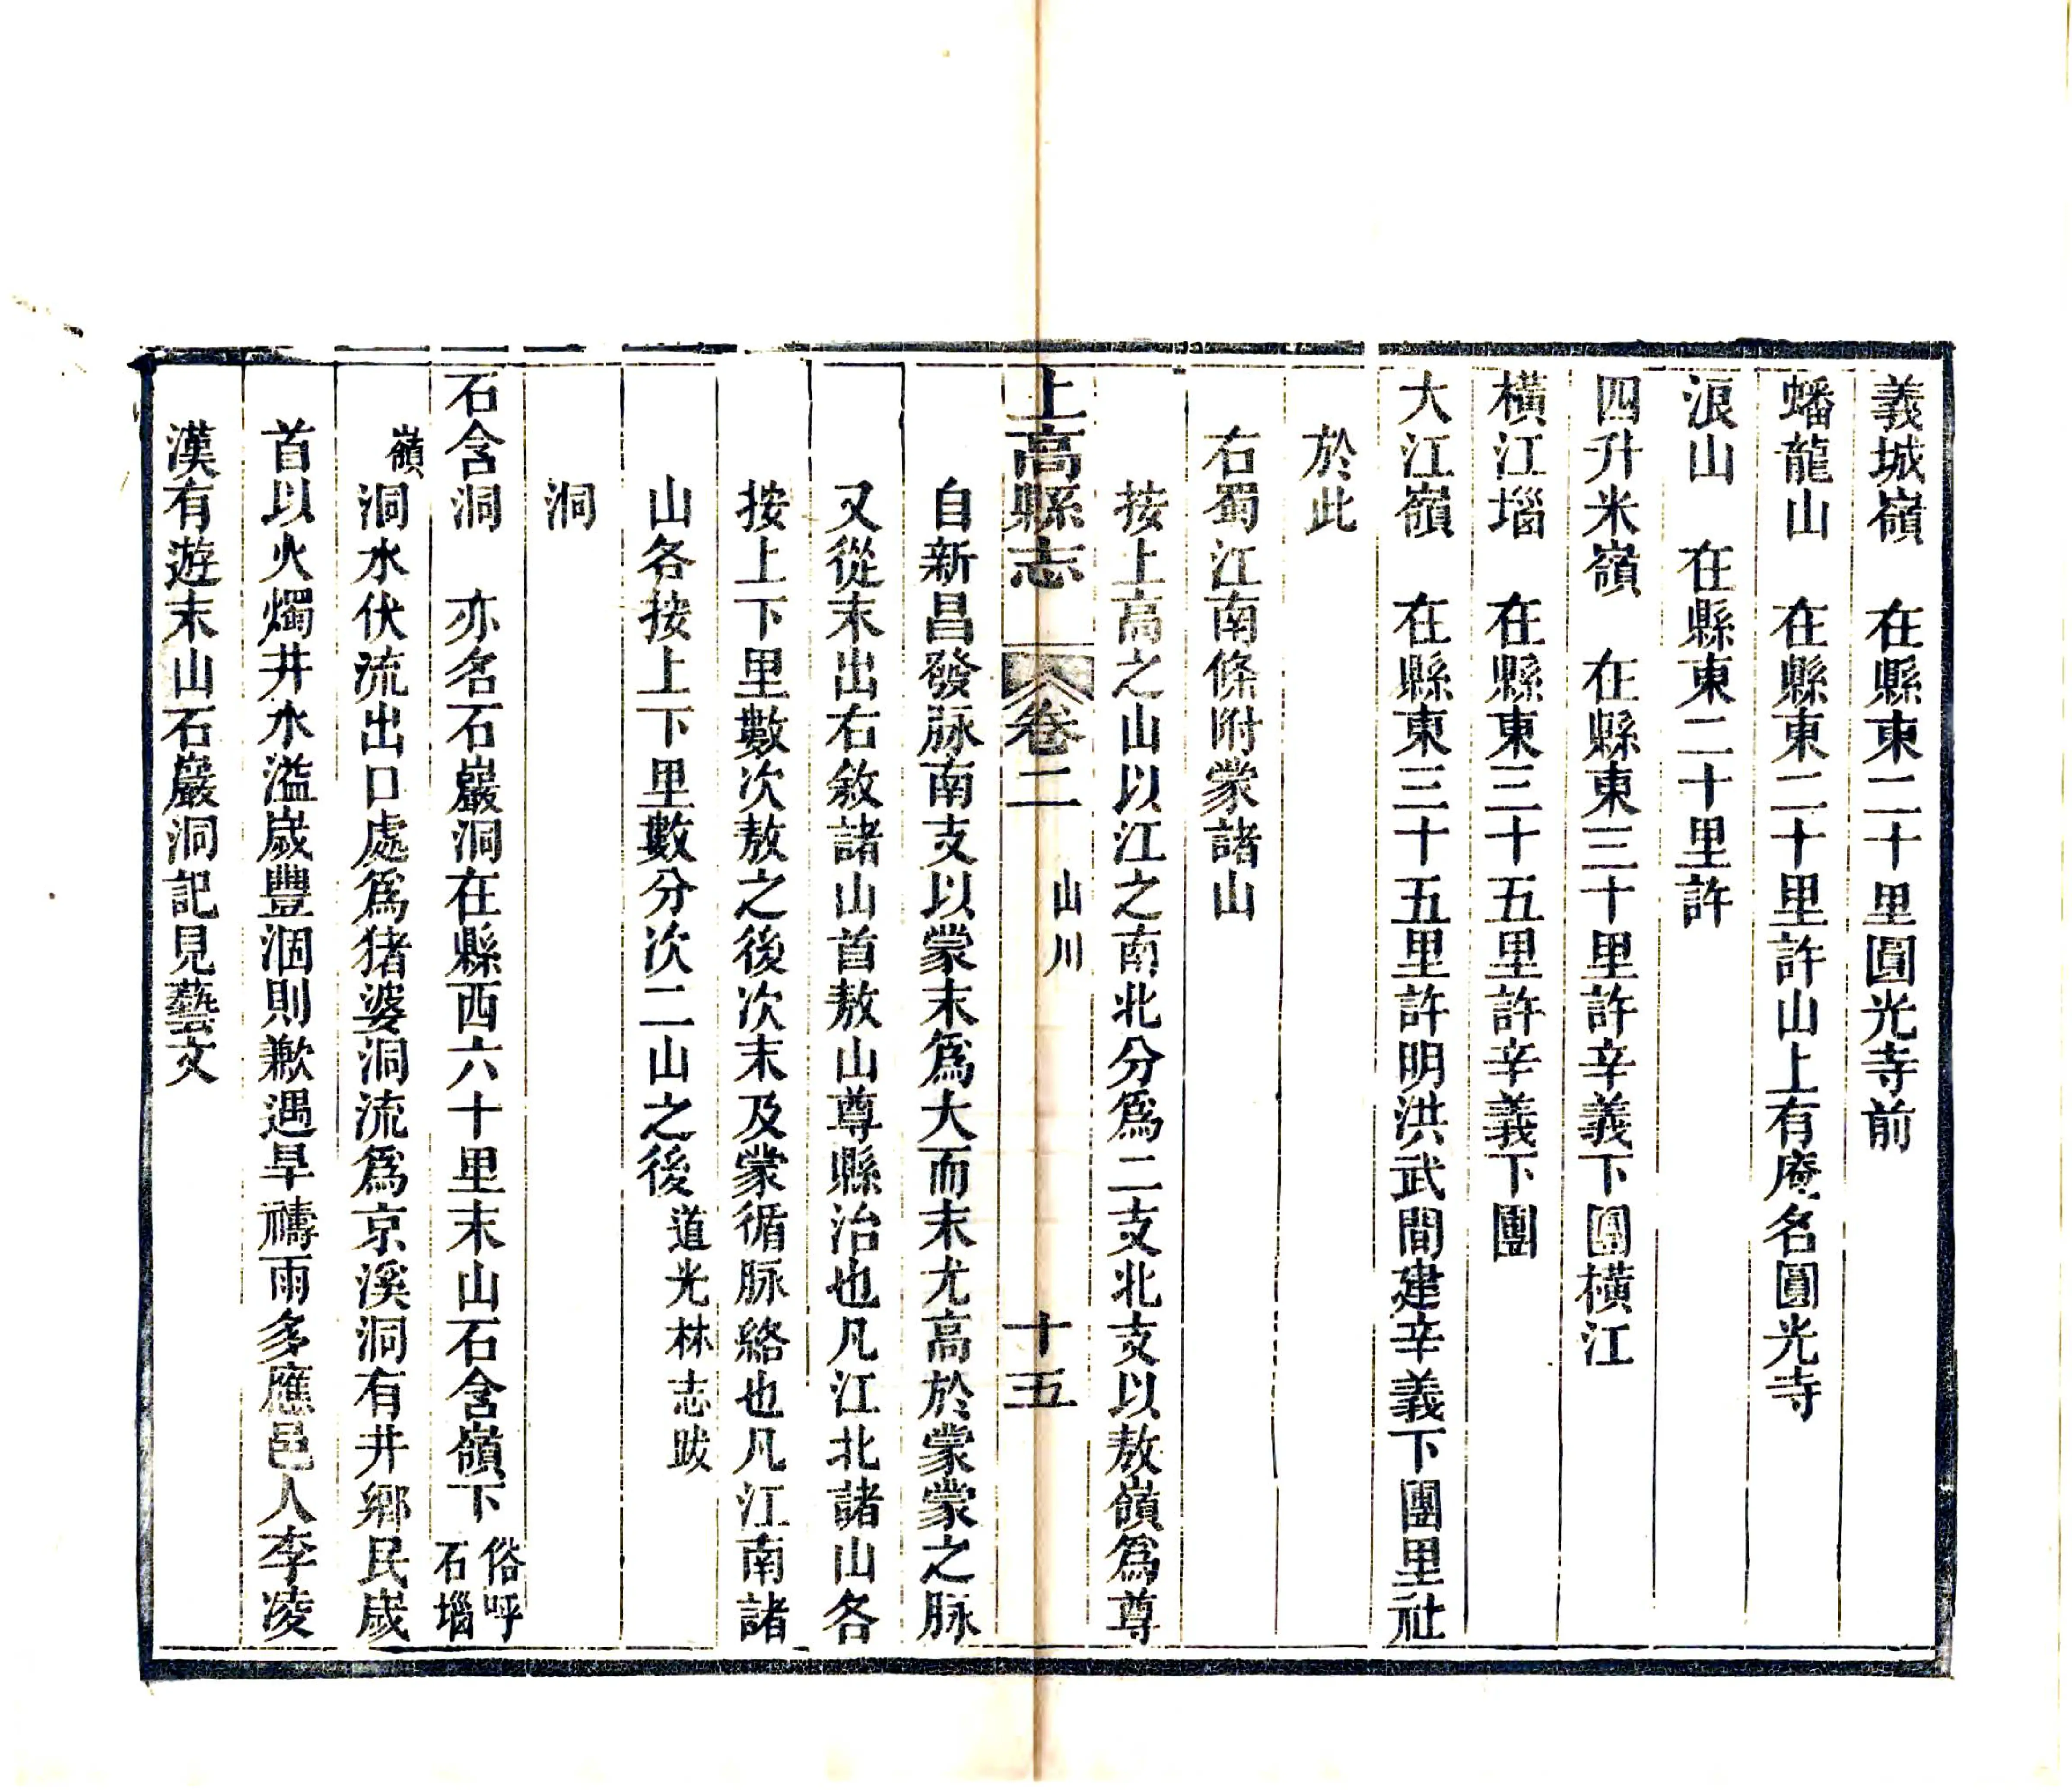 義城嶺　在縣東二十里圓光寺前
蟠龍山　在縣東二十里許山上有庵名圓光寺
浪山　在縣東二十里許
四升米嶺　在縣東三十里許辛義下團橫江
橫江堖　在縣東三十五里許辛義下團
大江嶺　在縣東三十五里許明洪武間建辛義下團里社
於此
右蜀江南條附蒙諸山
按上高之山以江之南北分爲二支北支以敖嶺爲尊
上高縣志　卷二　山川　十五
自新昌發脉南支以蒙末爲大而末尤高於蒙蒙之脉
又從末出右敘諸山首敖山尊縣治也凡江北諸山各
按上下里數次敖之後次末及蒙循脉絡也凡江南諸
山各按上下里數分次二山之後道光林志跋
洞
石含洞　亦名石巖洞在縣西六十里末山石含嶺下俗呼石堖
嶺洞水伏流出口處爲猪婆洞流爲京溪洞有井鄉民歲
首以火燭井水溢歲豐涸則歉遇旱禱雨多應邑人李凌
漢有遊末山石巖洞記見藝文